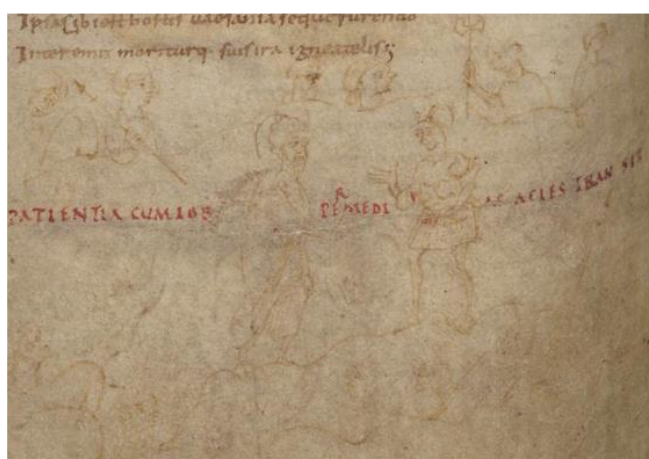 Ipsa sibi est hostis uaesania seque furendo
Interemit moriturq suis ira ignea telis;
PATIENTIA CUM IOB PER MEDIAS ACIES TRANSIIT